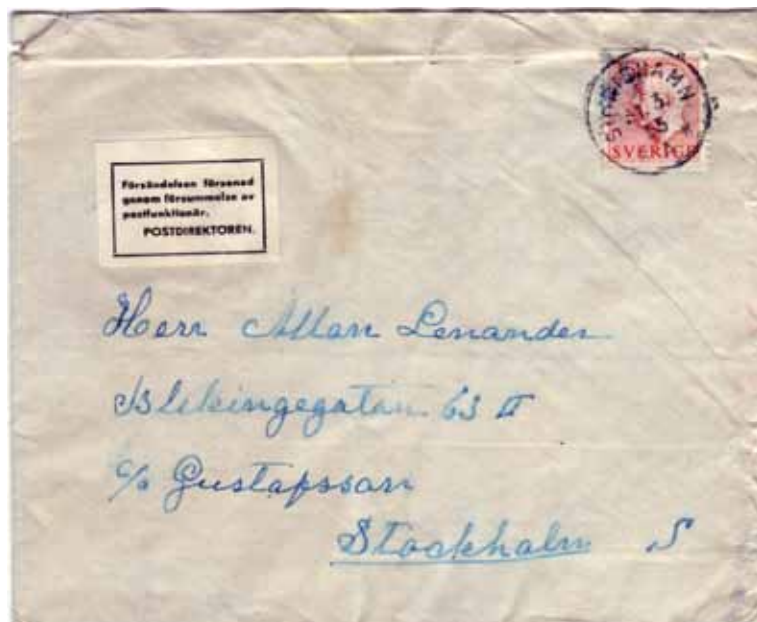 SVERIGE
Försändelsen försenad
genom försummelse av
postfunktionär.
POSTDIREKTOREN.
Herr Allan Lenander
Blekingegatan 63 II
c/o Gustafsson
Stockholm S